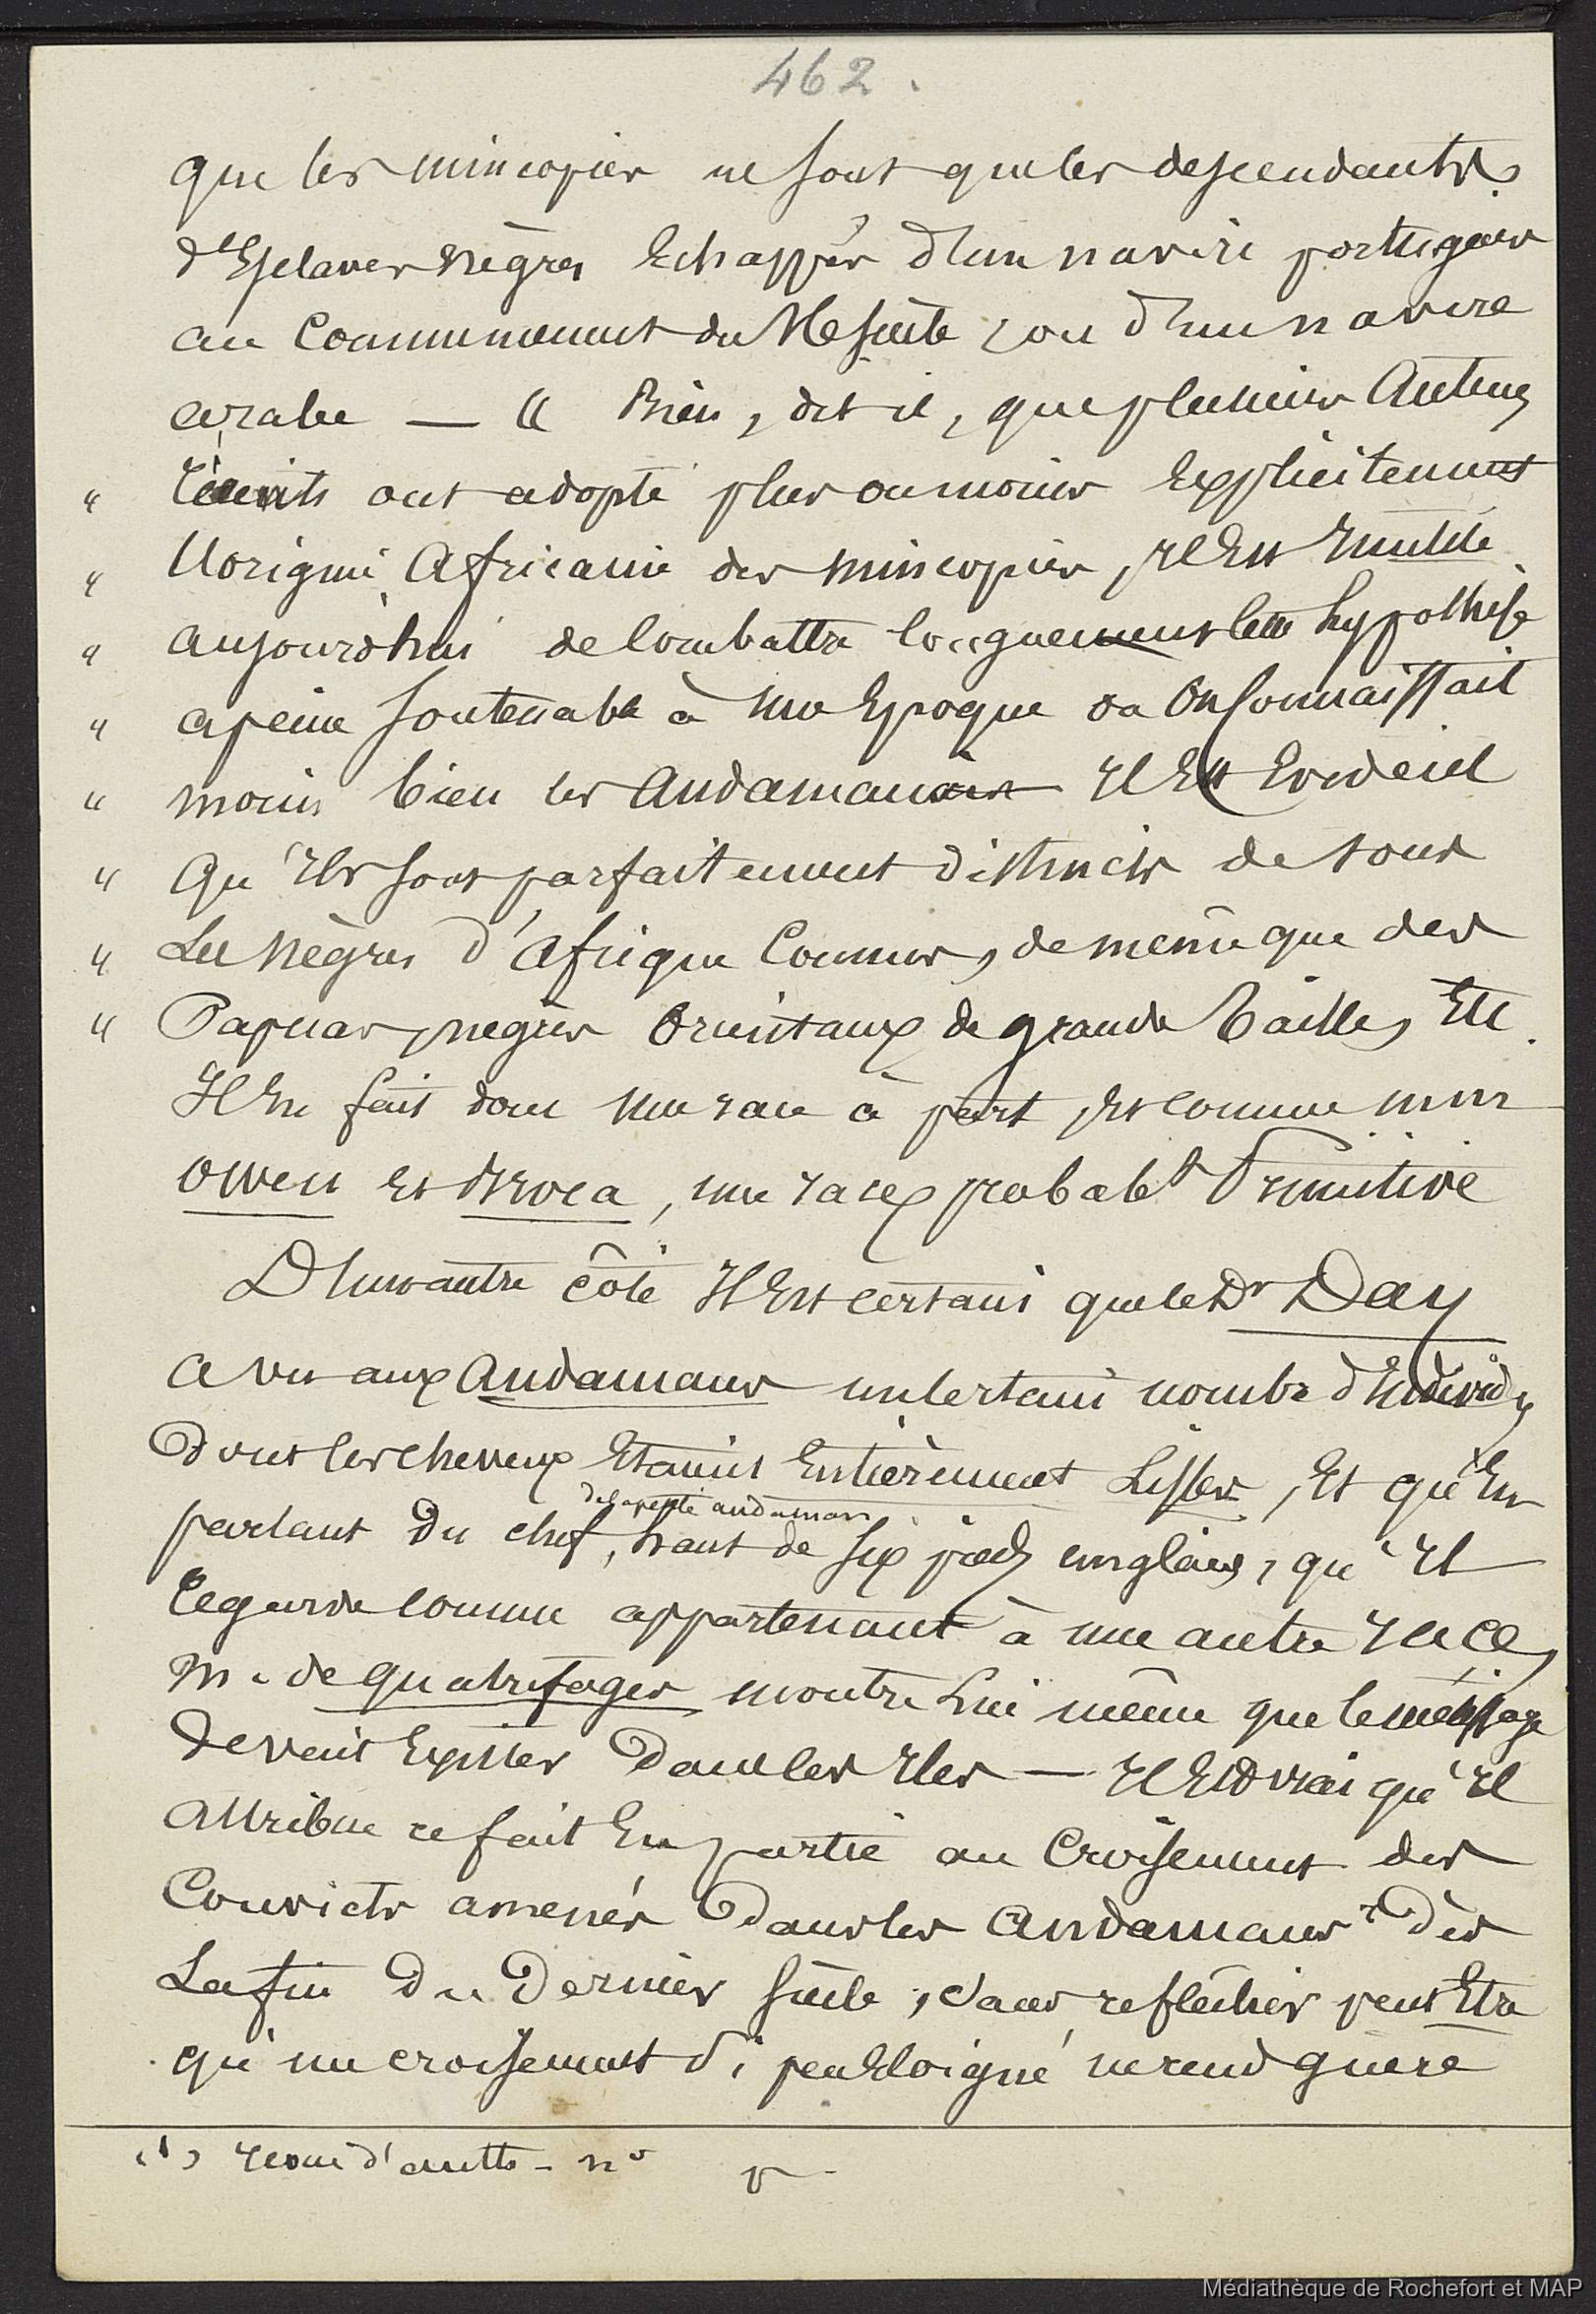 462.
que les mincopies ne sont que les descendants
d'Esclaves nègres Echappés d'un navire portugais
au Commencement du XVIe siècle, ou d'un navire
arabe — « Bien, dit il, que plusieurs Auteurs
" récents ont adopté plus ou moins Explicitement
" l'origine Africaine des mincopies, Il Est Inutile
" aujourd'hui de Combattre longuement cette hypothèse
" a peine soutenable à une Epoque où On Connaissait
" moins bien les Andamans Il Est Evident
" Qu'Ils sont parfaitement distincts de tous
" Les nègres d'Afrique Connus, de même que des
" Papuas, nègres Orientaux de grande Taille, Etc.
Il En fait donc une race à part, Et comme mrs
Owen Et Broca, une race probablt Primitive
D'un autre côté Il Est certain que le Dr Day
a vu aux Andamans un certain nombre d'Individus
Dont les cheveux Etaient Entièrement Lisses, Et qu'En
de la petite andaman
parlant Du chef, haut de six pieds anglais, qu'Il
regarde comme appartenant à une autre race,
M. de quatrefages montre Lui même que le métissage
Devait Exister Dans les Iles — Il Est vrai qu'Il
attribue ce fait En partie au Croisement des
Convicts amenés Dans les Andamans Dès
La fin Du Dernier siècle, sans refléchir peut Etre
qu'un croisement si peu Eloigné ne rend guère
(1) revue d'anth. nº V
Médiathèque de Rochefort et MAP